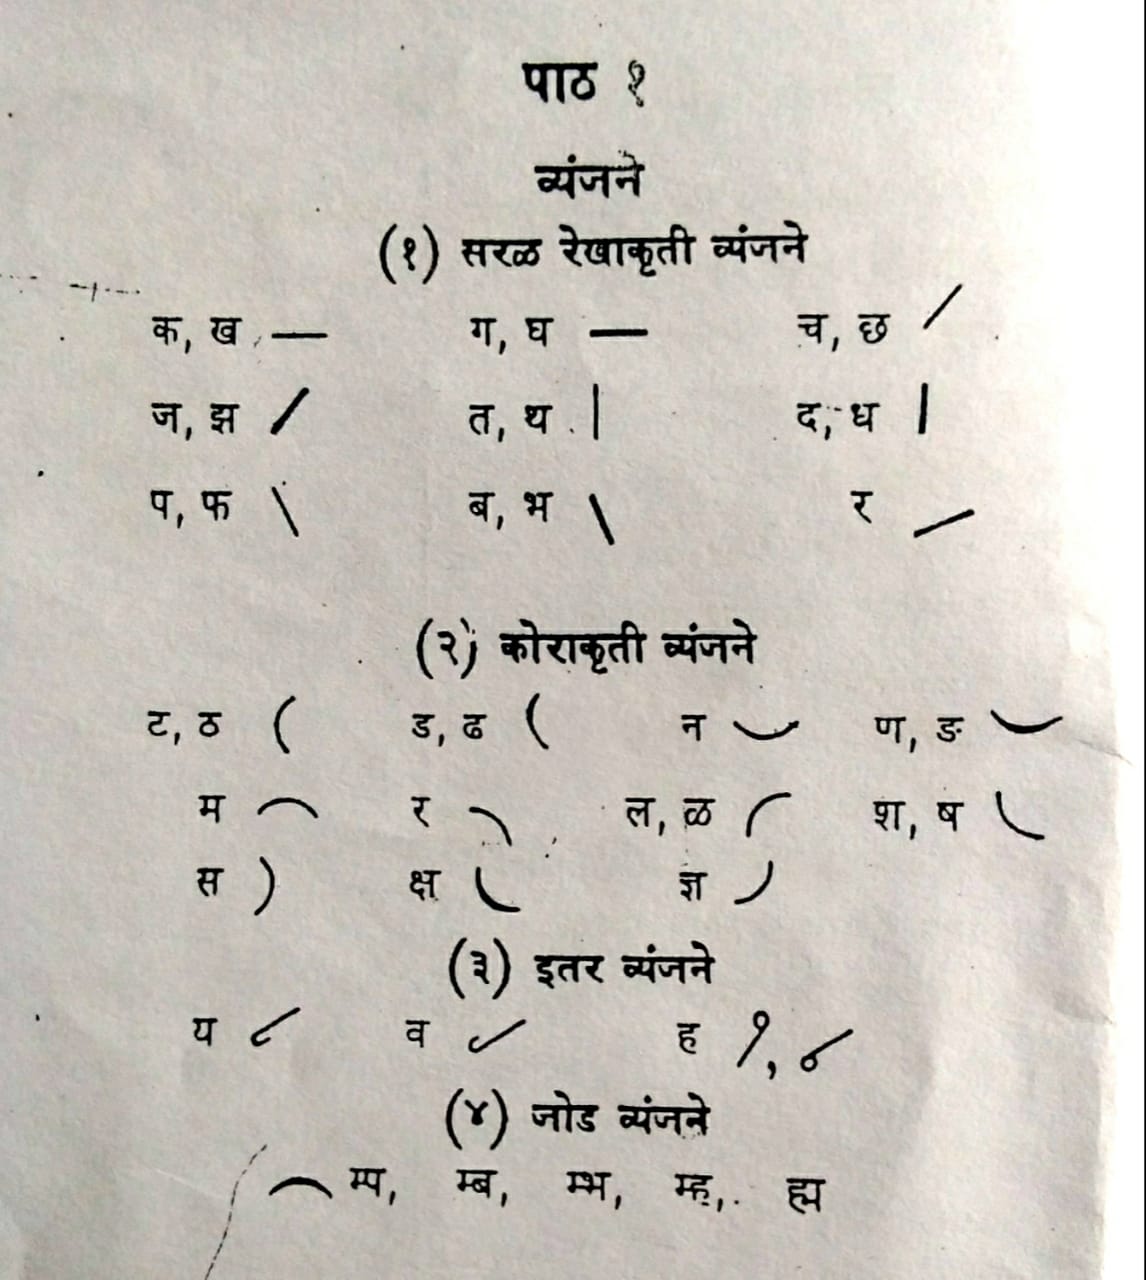 पाठ १
व्यंजने
(१) सरळ रेखाकृती व्यंजने
क, ख ग, घ च, छ
ज, झ त, थ द, ध
प, फ ब, भ र
(२) कोराकृती व्यंजने
ट, ठ ड, ढ न ण, ङ
म र ल, ळ श, ष
स क्ष ज्ञ
(३) इतर व्यंजने
य व ह
(४) जोड व्यंजने
म्प, म्ब, म्भ, म्ह, ह्म